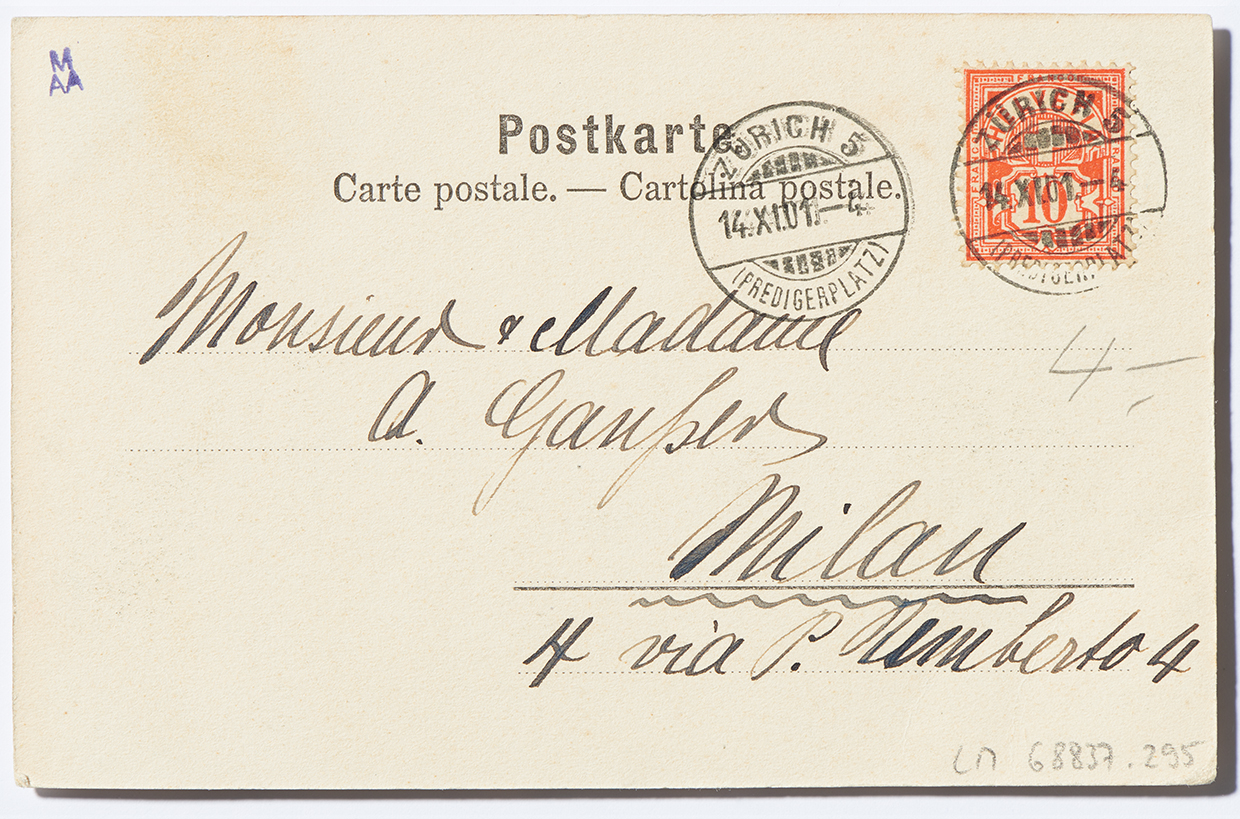 M
AA
Postkarte.
Carte postale. — Cartolina postale.
ZÜRICH 5
14.XI.01.–4
(PREDIGERPLATZ)
FRANCO
10
ZÜRICH 5
14.XI.01.–4
(PREDIGERPLATZ)
Monsieur & Madame
A. Ganßer
Milan
4 via P. Umberto 4
4.–
LM 68837.295